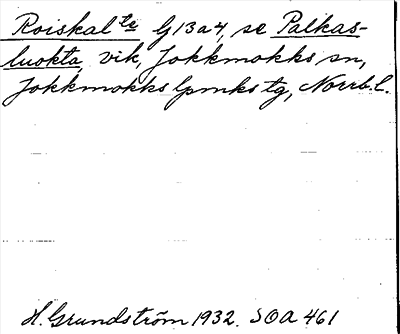 Roiskal te G13a4, se Palkas-
luokta, vik, Jokkmokks sn,
Jokkmokks lpmks tg, Norrb. l.
H. Grundström 1932. SOA 461